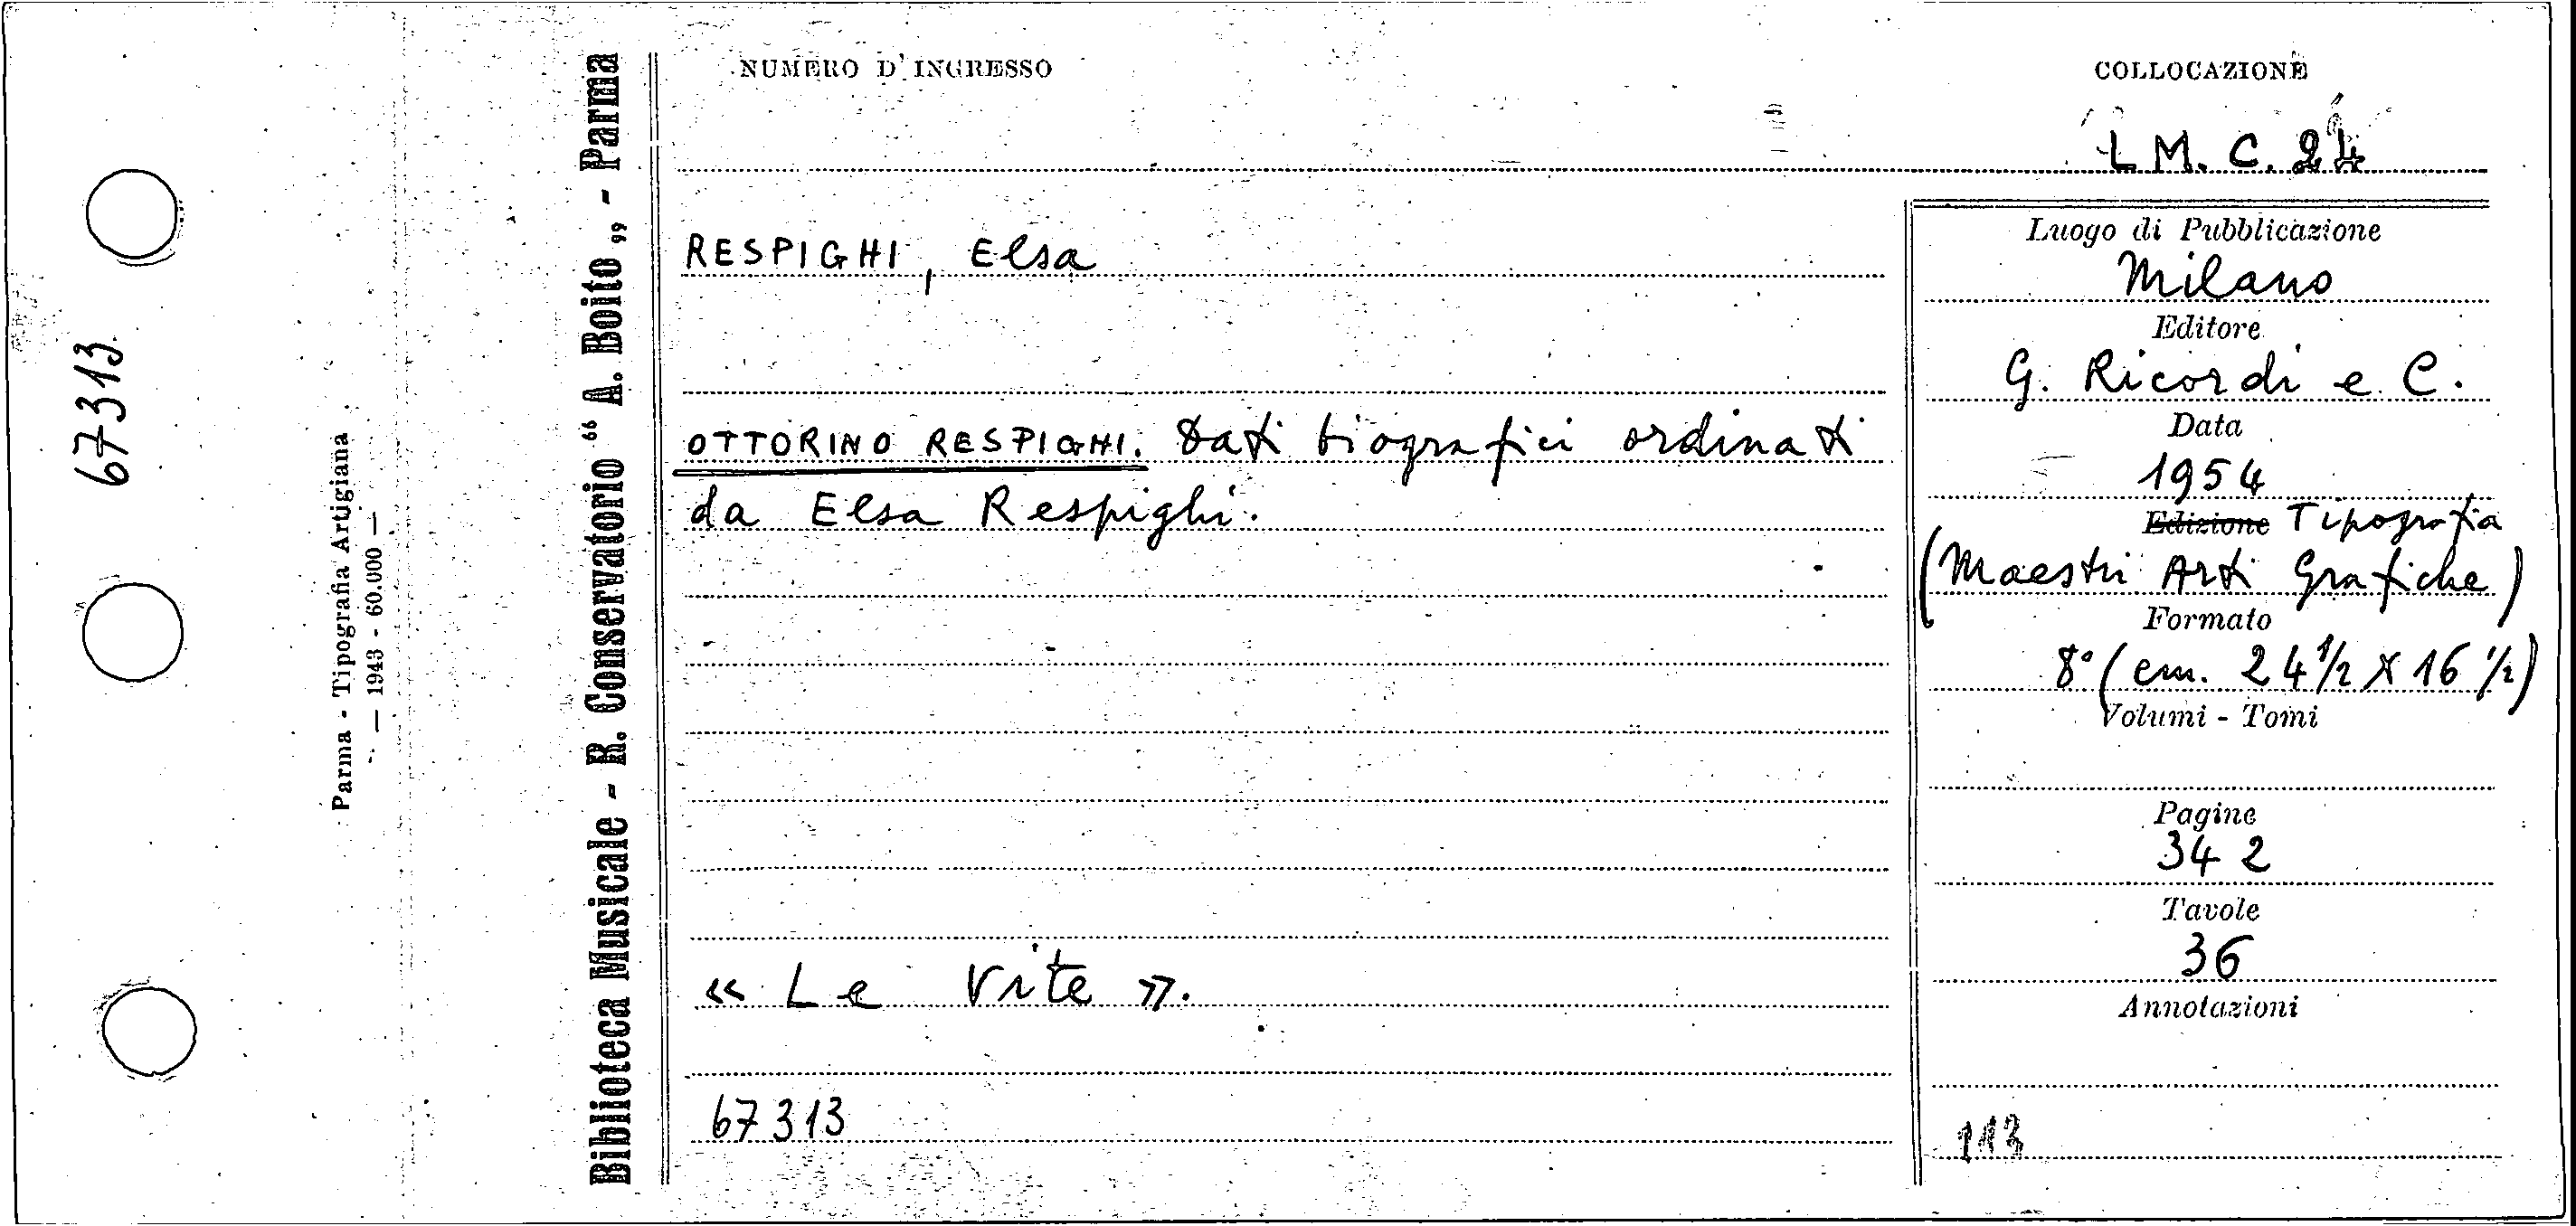 67313
Parma - Tipografia Artigiana
— 1943 - 60.000 —
Biblioteca Musicale - R. Conservatorio “ A. Boito „ - Parma
NUMERO D'INGRESSO
RESPIGHI, Elsa
OTTORINO RESPIGHI. Dati biografici ordinati
da Elsa Respighi.
« Le Vite ».
67313
COLLOCAZIONE
LM. C. 24
Luogo di Pubblicazione
Milano
Editore
G. Ricordi e C.
Data
1954
Edizione Tipografia
(Maestri Arti Grafiche)
Formato
8° (cm. 24 1/2 X 16 1/2)
Volumi - Tomi
Pagine
342
Tavole
36
Annotazioni
113